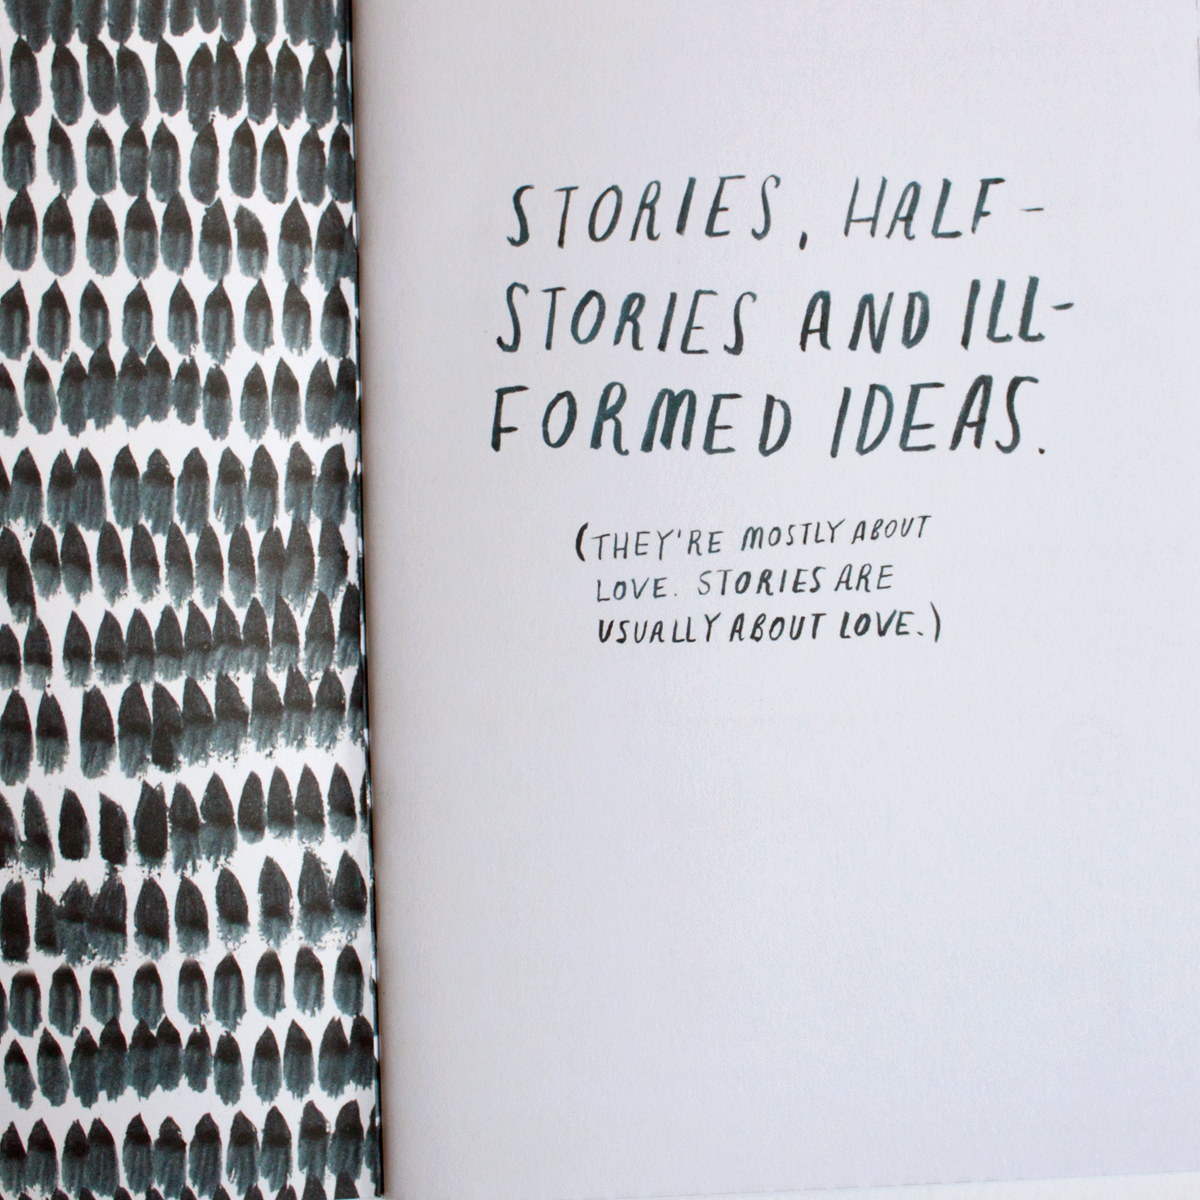 STORIES, HALF-
STORIES AND ILL-
FORMED IDEAS.
(THEY'RE MOSTLY ABOUT
LOVE. STORIES ARE
USUALLY ABOUT LOVE.)